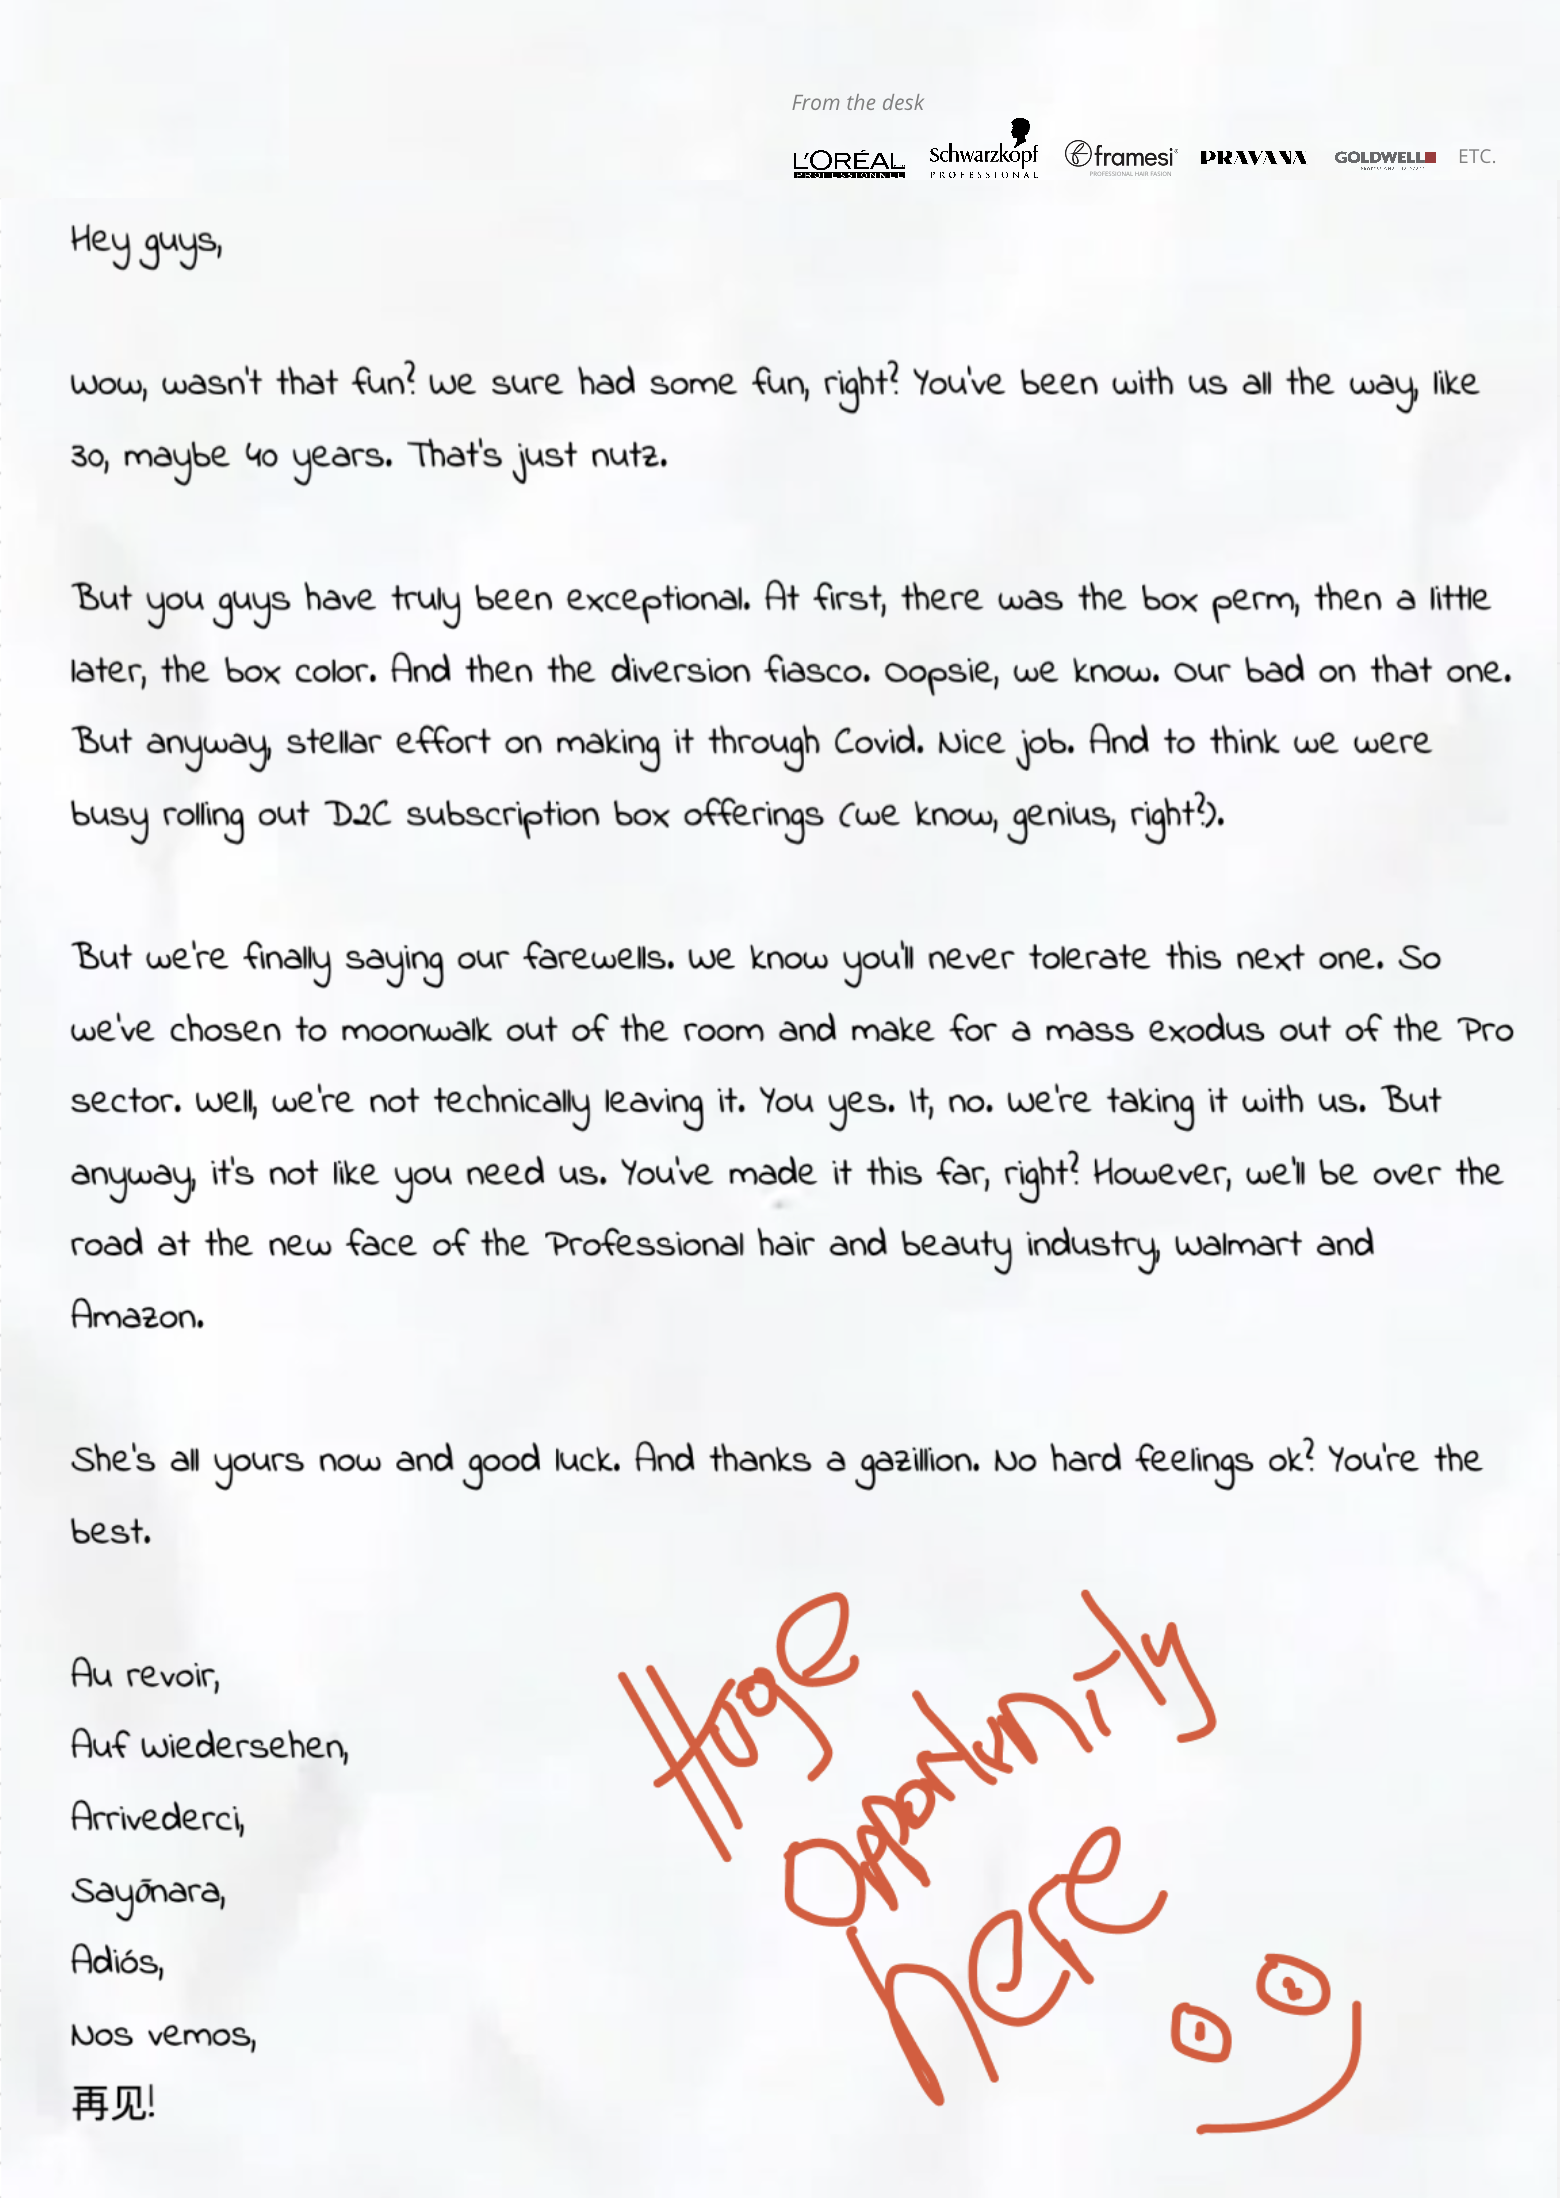 From the desk
L'ORÉAL PROFESSIONNEL Schwarzkopf PROFESSIONAL framesi PROFESSIONAL HAIR FASION PRAVANA GOLDWELL ETC.
Hey guys,
Wow, wasn't that fun? We sure had some fun, right? You've been with us all the way, like
30, maybe 40 years. That's just nutz.
But you guys have truly been exceptional. At first, there was the box perm, then a little
later, the box color. And then the diversion fiasco. Oopsie, we know. Our bad on that one.
But anyway, stellar effort on making it through Covid. Nice job. And to think we were
busy rolling out D2C subscription box offerings (we know, genius, right?).
But we're finally saying our farewells. We know you'll never tolerate this next one. So
we've chosen to moonwalk out of the room and make for a mass exodus out of the Pro
sector. Well, we're not technically leaving it. You yes. It, no. We're taking it with us. But
anyway, it's not like you need us. You've made it this far, right? However, we'll be over the
road at the new face of the Professional hair and beauty industry, Walmart and
Amazon.
She's all yours now and good luck. And thanks a gazillion. No hard feelings ok? You're the
best.
Au revoir,
Auf wiedersehen,
Arrivederci,
Sayōnara,
Adiós,
Nos vemos,
再见!
Huge
Opportunity
here